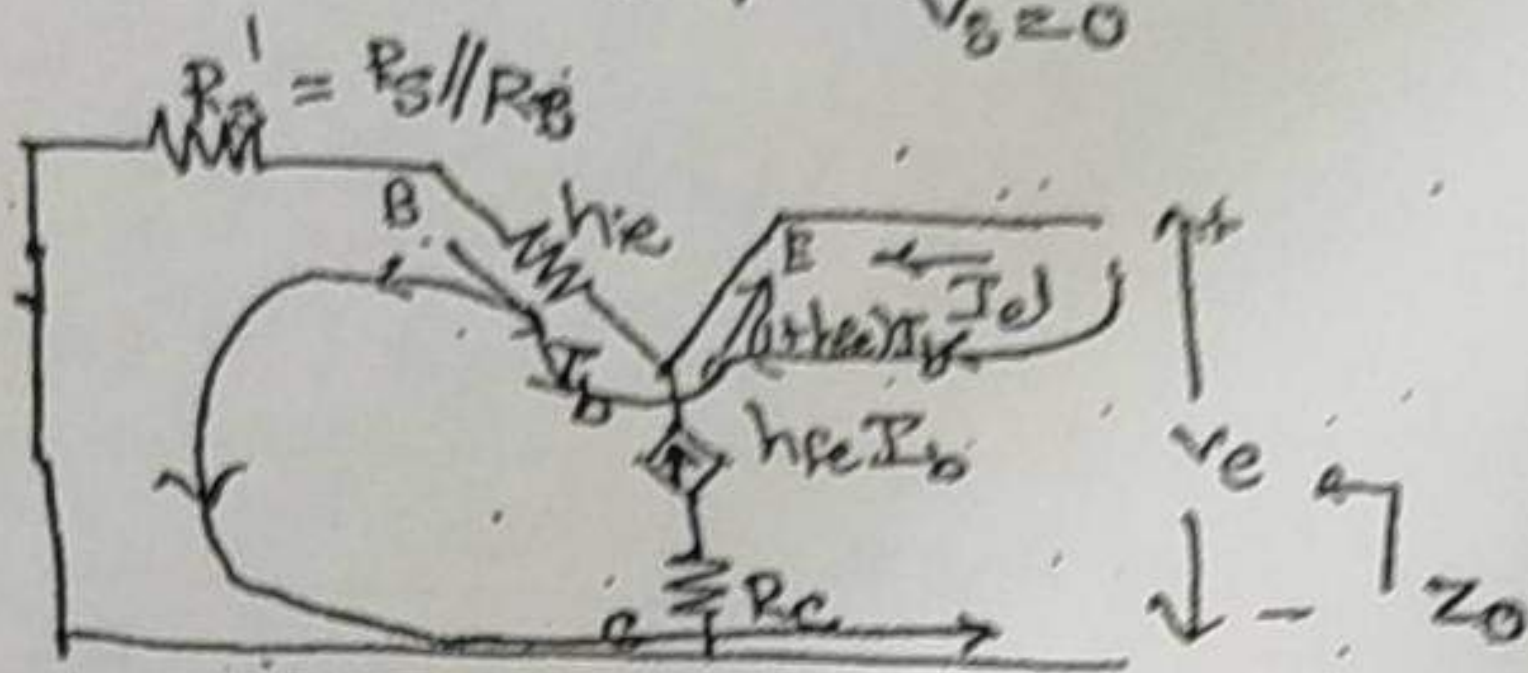 V_s = 0
R_s' = R_S // R_B
B
hie
E
I_e
(1+hfe)I_b
I_b
hfe I_b
ve
+
-
Z_o
R_C
C